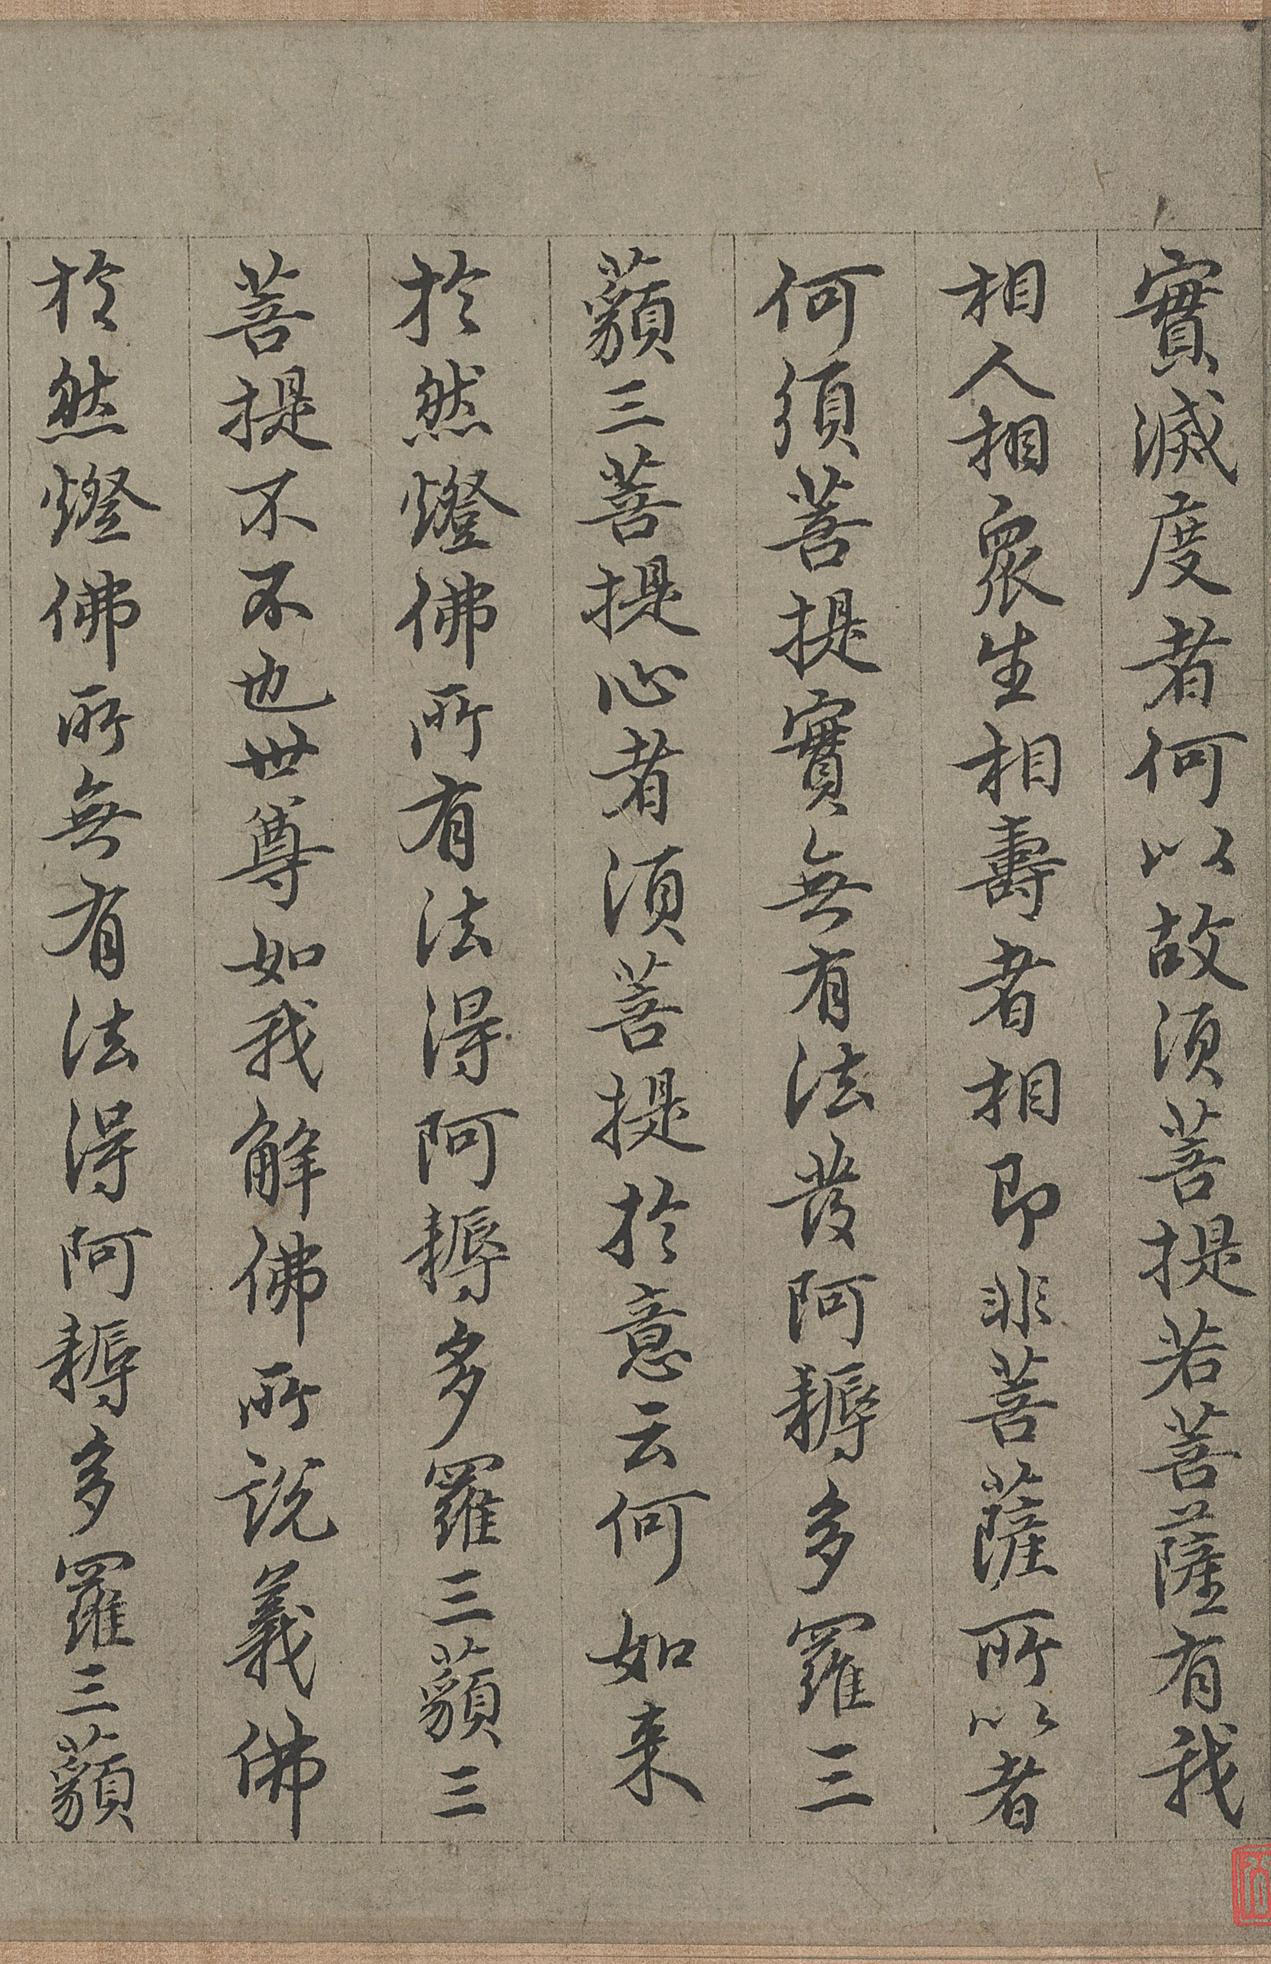 實滅度者何以故須菩提若菩薩有我
相人相衆生相壽者相即非菩薩所以者
何須菩提實無有法發阿耨多羅三
藐三菩提心者須菩提於意云何如来
於然燈佛所有法得阿耨多羅三藐三
菩提不不也世尊如我解佛所説義佛
於然燈佛所無有法得阿耨多羅三藐